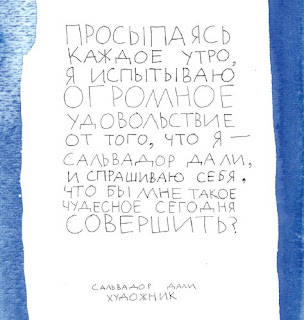 ПРОСЫПАЯСЬ
КАЖДОЕ УТРО,
Я ИСПЫТЫВАЮ
ОГРОМНОЕ
УДОВОЛЬСТВИЕ
ОТ ТОГО, ЧТО Я —
САЛЬВАДОР ДАЛИ,
И СПРАШИВАЮ СЕБЯ,
ЧТО БЫ МНЕ ТАКОЕ
ЧУДЕСНОЕ СЕГОДНЯ
СОВЕРШИТЬ?
САЛЬВАДОР ДАЛИ
ХУДОЖНИК